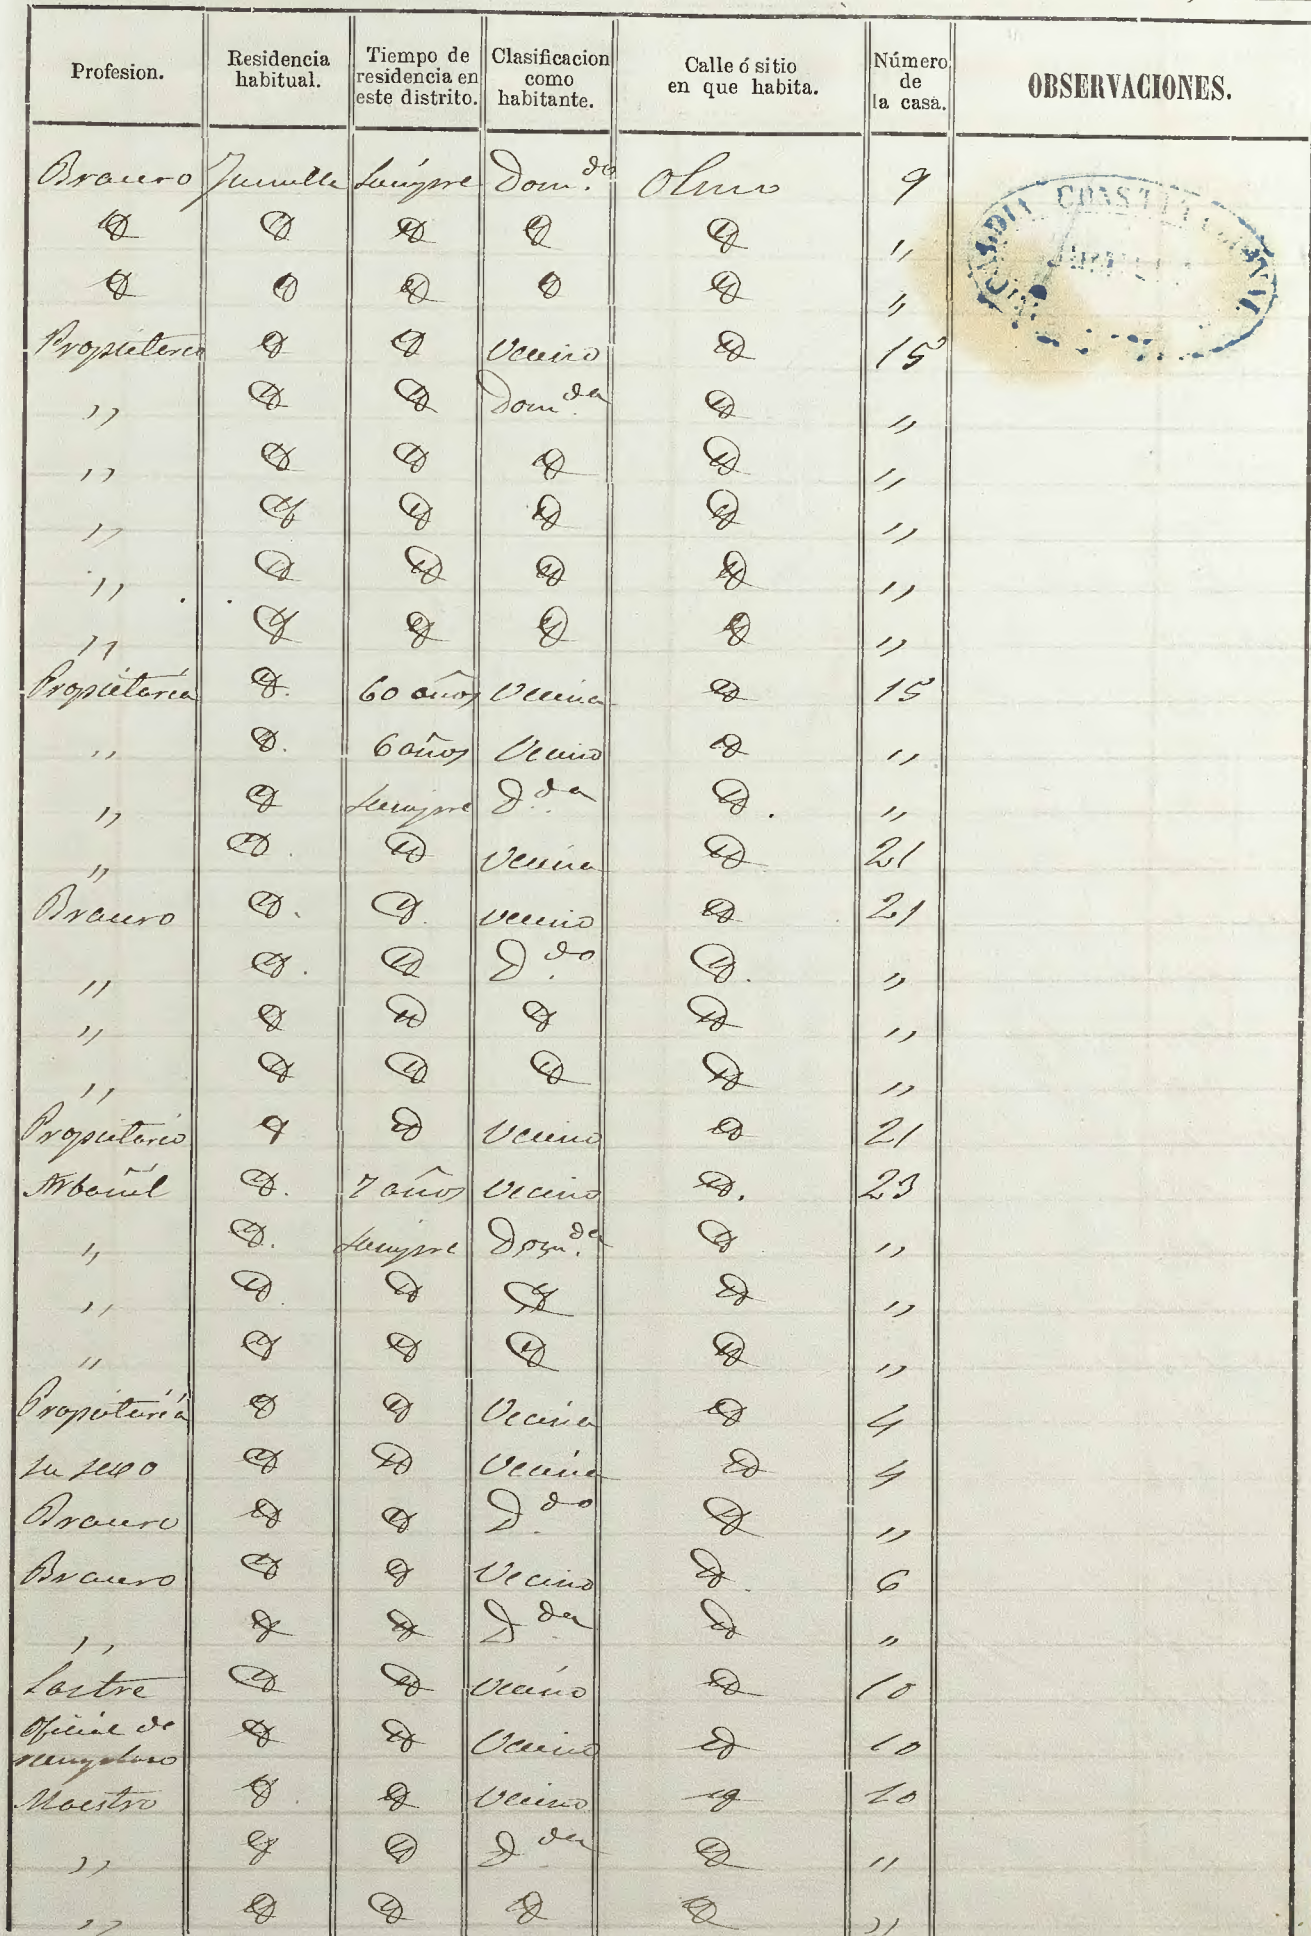 Profesion. Residencia habitual. Tiempo de residencia en este distrito. Clasificacion como habitante. Calle ó sitio en que habita. Número de la casa. OBSERVACIONES.
Bracero Jumilla Siempre Dom.do Olmo 9
Id Id Id Id Id "
Id Id Id Id Id "
Propietario Id Id Vecino Id 15
" Id Id Dom.da Id "
" Id Id Id Id "
" Id Id Id Id "
" Id Id Id Id "
" Id Id Id Id "
Propietaria Id. 60 años Vecina Id 15
" Id. 6 años Vecino Id "
" Id Siempre D.da Id. "
" Id. Id Vecina Id 21
Bracero Id. Id. vecino Id 21
" Id. Id D.do Id. "
" Id Id Id Id "
" Id Id Id Id "
Propietario Id Id Vecino Id 21
Arbañil Id. 7 años Vecino Id. 23
" Id. Siempre Dom.da Id "
" Id. Id Id Id "
" Id Id Id Id "
Propietaria Id Id Vecina Id 4
su sexo Id Id Vecina Id 4
Bracero Id Id D.do Id "
Bracero Id Id Vecino Id. 6
" Id Id D.da Id "
Sastre Id Id Vecino Id 10
Oficial de Id Id Vecino Id 10
Maestro Id Id Vecino Id 10
" Id Id D.da Id "
" Id Id Id Id "
ALCALDIA CONSTITUCIONAL
JUMILLA